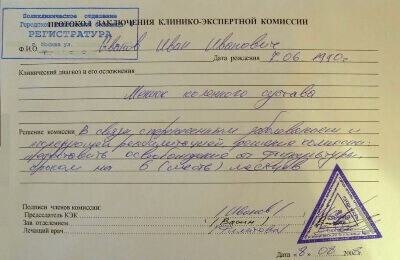 Поликлиническое отделение
Городской
РЕГИСТРАТУРА
Москва ул.
ПРОТОКОЛ ЗАКЛЮЧЕНИЯ КЛИНИКО-ЭКСПЕРТНОЙ КОМИССИИ
Ф.И.О. Иванов Иван Иванович
Дата рождения 06. 1990г.
Клинический диагноз и его осложнения
коленного сустава
Решение комиссии В связи с перенесенным заболеванием и
последующей реабилитацией, решение комиссии:
предоставить освобождение от физкультуры
сроком на 6 (шесть) месяцев
Подписи членов комиссии:
Председатель КЭК /Иванов/
Зав. отделением
Лечащий врач
Дата 8. 07. 2008г.